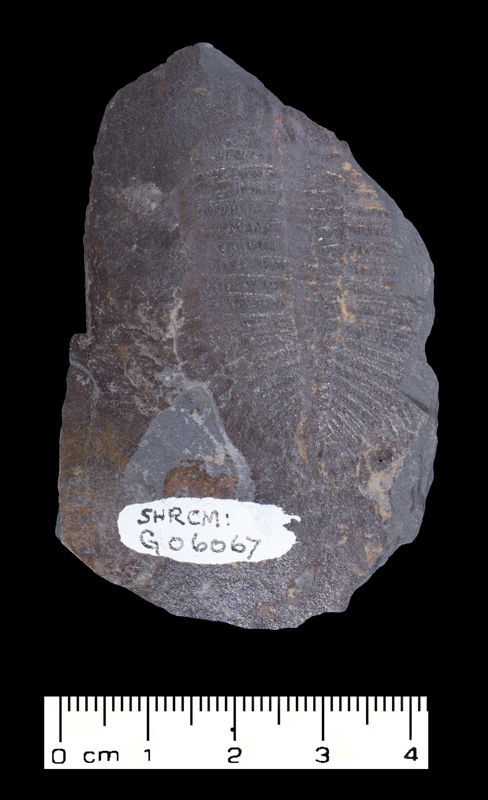 SHRCM:
G06067
0 cm 1 2 3 4